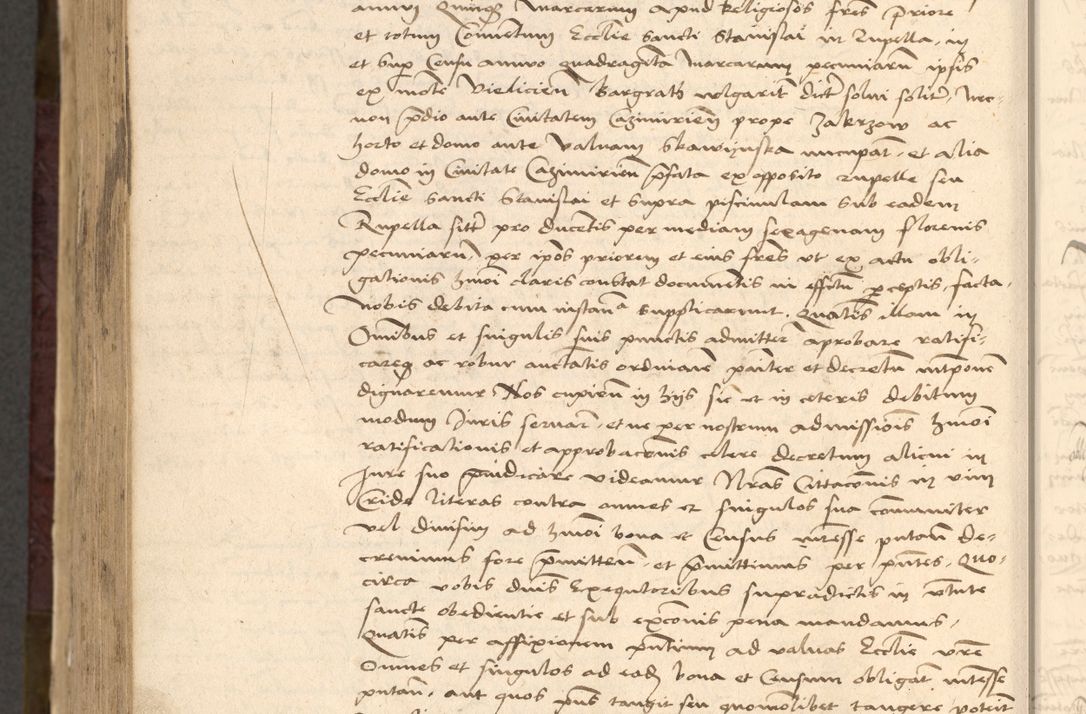 annui quinq marcarum apud Religiosos fres priore
et totum Conventum Ecclie Sancti Stanislai in Rupella, in
et sup Censu annuo quadraginta marcarum pecuniarum ipsis
ex monte Vieliciem Bargrath vulgarit dict solui solit, Nec-
non predio ante Civitatem Cazimiriem prope Zakrzow ac
horto et domo ante valvam Skawijnska nuncupat, et alia
domo in Civitate Cazimiriem prefata ex opposito Rupelle seu
Ecclie Sancti Stanislai et supra piscinulam sub eadem
Rupella sitt pro ducetis per mediam sexagenam florenis
pecuniarum, per ipos priorem et eius fres ut ex actu obli-
gationis hmoi claris constat documetis in effctu perceptis, facta,
nobis debita cum instancia supplicarunt. Quatus illam in
Omnibus et singulis suis punctis admittere aprobare ratifi-
careq ac robur auctatis ordinarie pariter et decretum interponere
dignaremur. Nos cupien in hijs sic ut in ceteris debitum
modum Juris servare, et ne per nostrum admissionis hmoi
ratificationis et approbaconis celere decretum alicui in
Jure suo preiudicare videamur Nras Cittaconis in vim
Cride literas contra omnes et singulos sua communiter
vel divisim ad hmoi bona et Census interesse putan de-
crevimus fore premitten, et premittimus per pntes. Quo-
circa vobis dnis Exequutoribus supradictis in vtute
sancte obedientie et sub exconis pena mandamus,
Quatus per affixionem pntium ad valvas Ecclie vre
Omnes et singulos ad ead bona et Censum obligat interesse
putan, aut quos pns tangit seu quomolibet tangere poterit